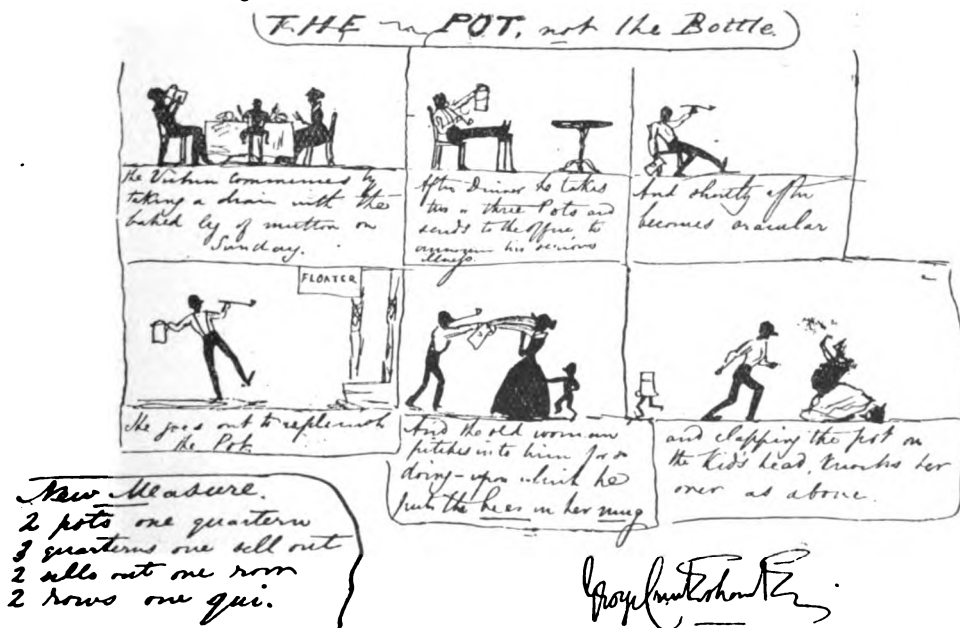 THE POT, not the Bottle.
The Victim commences by
taking a drain with the
baked leg of mutton on
Sunday.
After Dinner he takes
two or three Pots and
sends to the office to
announce his serious
illness.
And shortly after
becomes oracular
FLOATER
He goes out to replenish
the Pot.
And the old woman
pitches into him for so
doing - upon which he
puts the bees in her mug
and clapping the pot on
the Kid's head, Knocks her
over as above.
New Measure.
2 pots one quartern
3 quarterns one sell out
2 sells out one row
2 rows one qui.